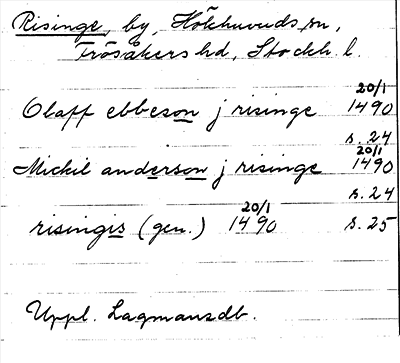 Risinge, by, Hökhuvuds sn,
Frösåkers hd, Stockh. l.
Olaff ebbeson j risinge 20/1 1490
s. 24
Mickil anderson j risinge 20/1 1490
s. 24
risingis (gen.) 20/1 1490 s. 25
Uppl. Lagmansdb.